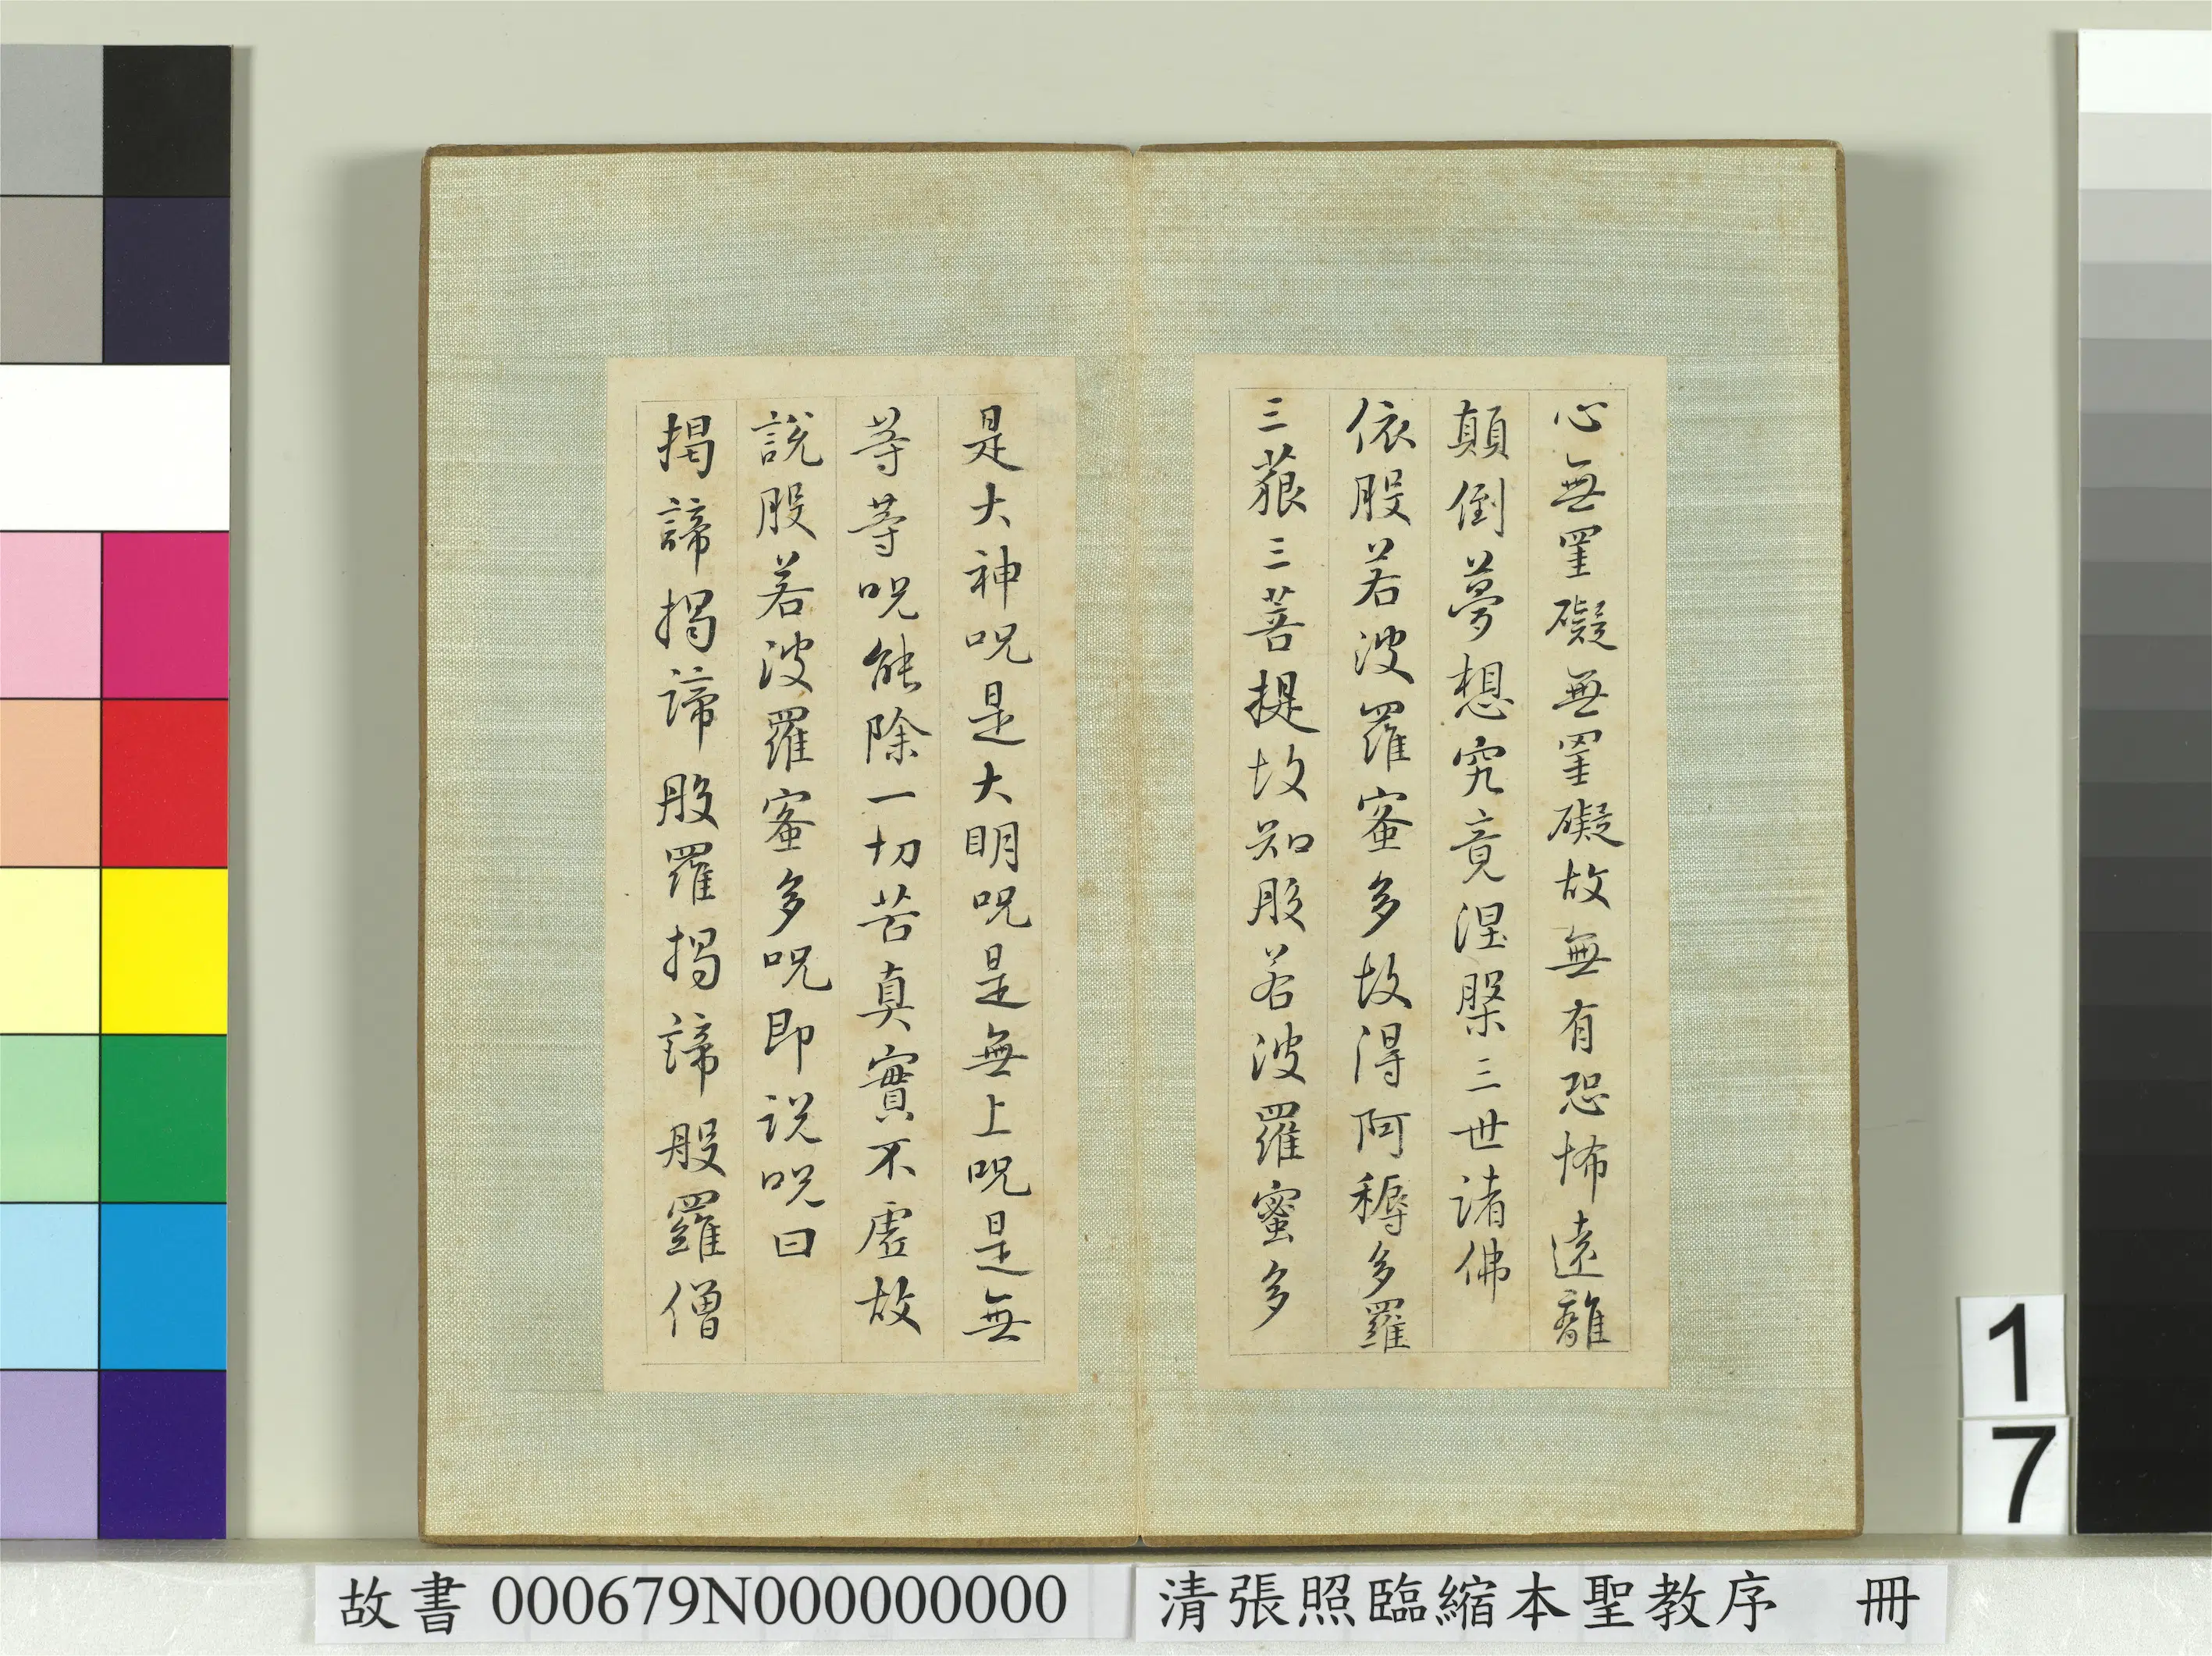 心無罣礙無罣礙故無有恐怖遠離
顛倒夢想究竟涅槃三世諸佛
依般若波羅蜜多故得阿耨多羅
三藐三菩提故知般若波羅蜜多
是大神呪是大明呪是無上呪是無
等等呪能除一切苦真實不虛故
說般若波羅蜜多呪即說呪曰
揭諦揭諦般羅揭諦般羅僧
17
故書 000679N000000000
清張照臨縮本聖教序 冊